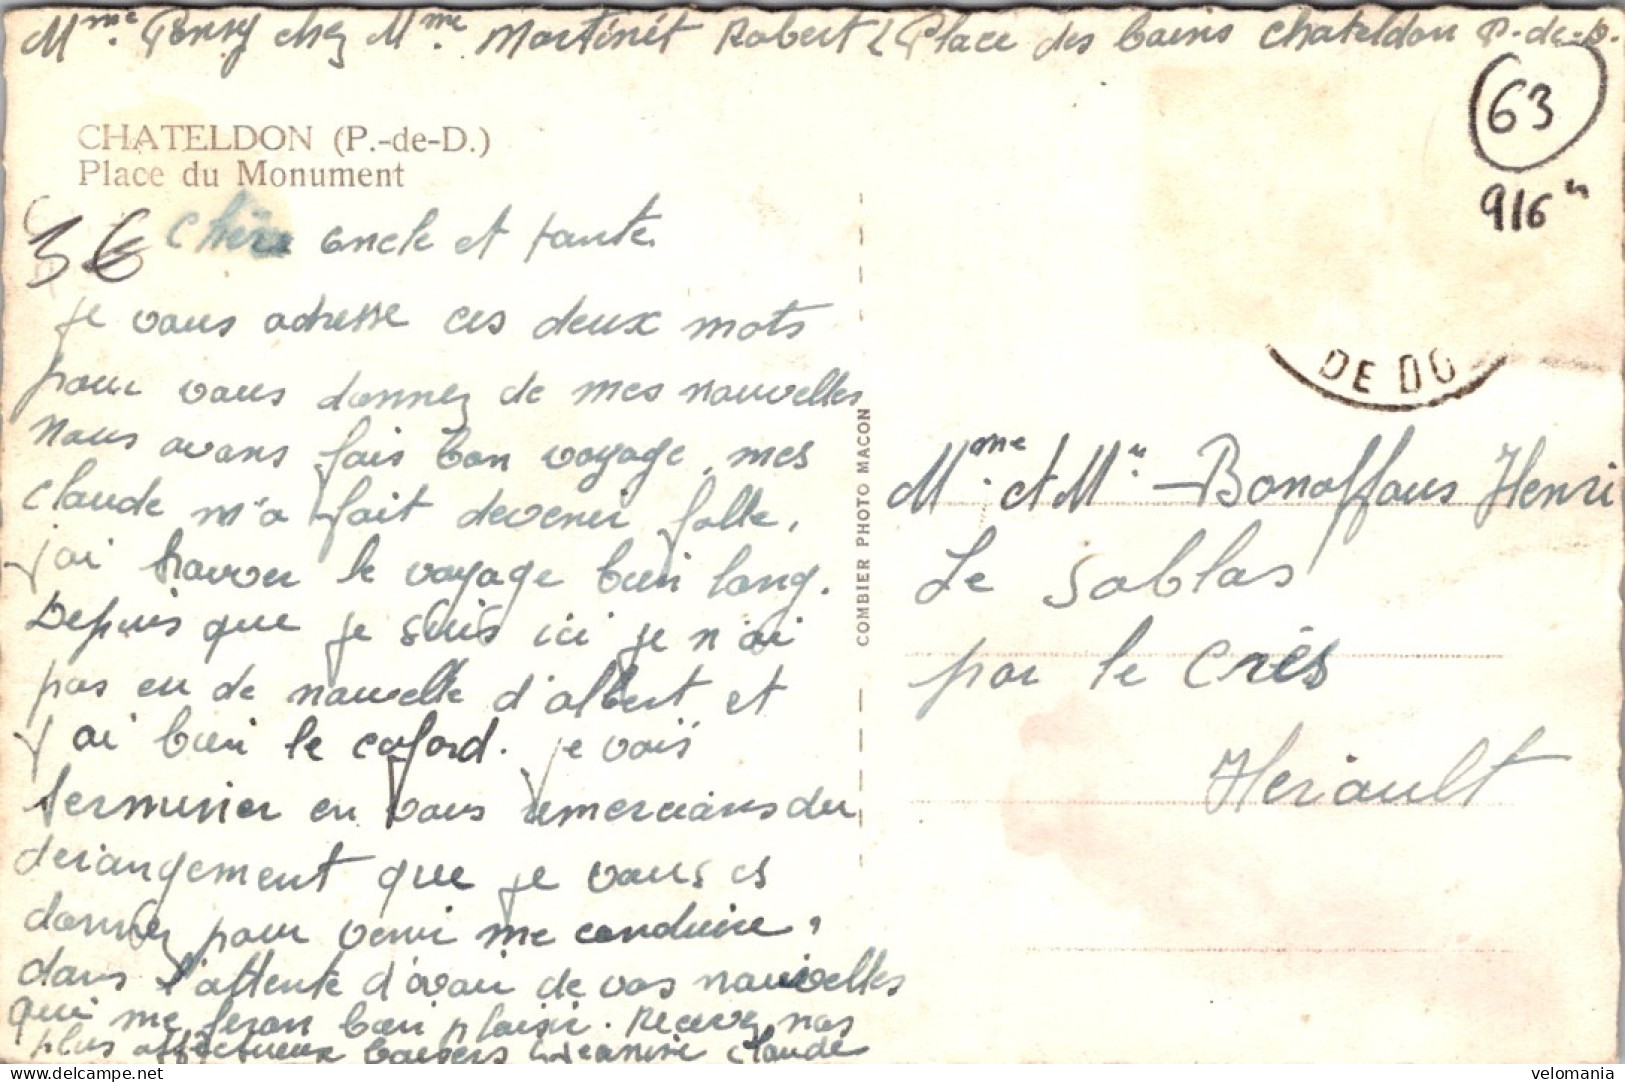 Mme. Perry chez Mme. Martinet Robert Place des bains Chateldon P-de-D.
63
916
CHATELDON (P.-de-D.)
Place du Monument
3€
Chère oncle et tante.
je vous adresse ces deux mots
pour vous donnez de mes nouvelles
nous avons fais bon voyage, mes
claude m'a fait devenir folle.
j'ai trouver le voyage bien long.
Depuis que je suis ici je n'ai
pas eu de nouvelle d'albert et
j'ai bien le cafard. je vais
terminer en vous remercians du
derangement que je vous es
donnez pour venir me conduire,
dans l'attente d'avoir de vos nouvelles
qui me feron bien plaisir. Recevez nos
plus affectueux baisers Jeanine claude
COMBIER PHOTO MACON
DE DO
Mme. et Mr - Bonaffous Henri
Le Sablas
par le Crès
Herault
delcampe.net
velomania